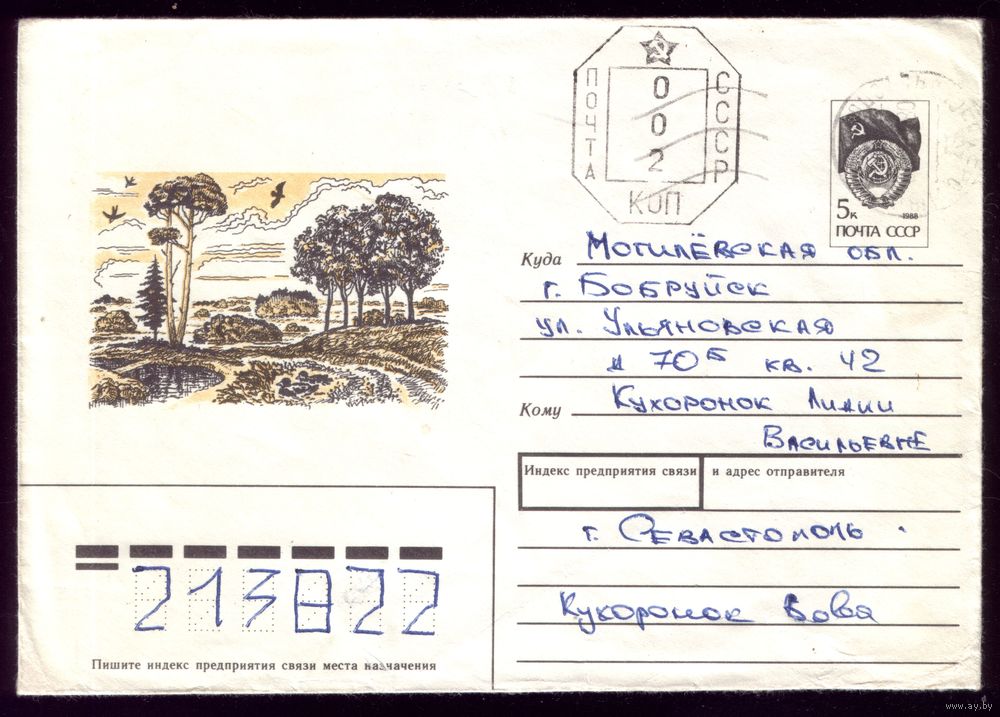 ПОЧТА
СССР
002
КОП
5к
1988
ПОЧТА СССР
Куда Могилёвская обл.
г. Бобруйск
ул. Ульяновская
д 70Б кв. 42
Кому Кухоронок Лидии
Васильевне
Индекс предприятия связи и адрес отправителя
г. Севастополь
Кухоронок Вова
213822
Пишите индекс предприятия связи места назначения
www.ay.by